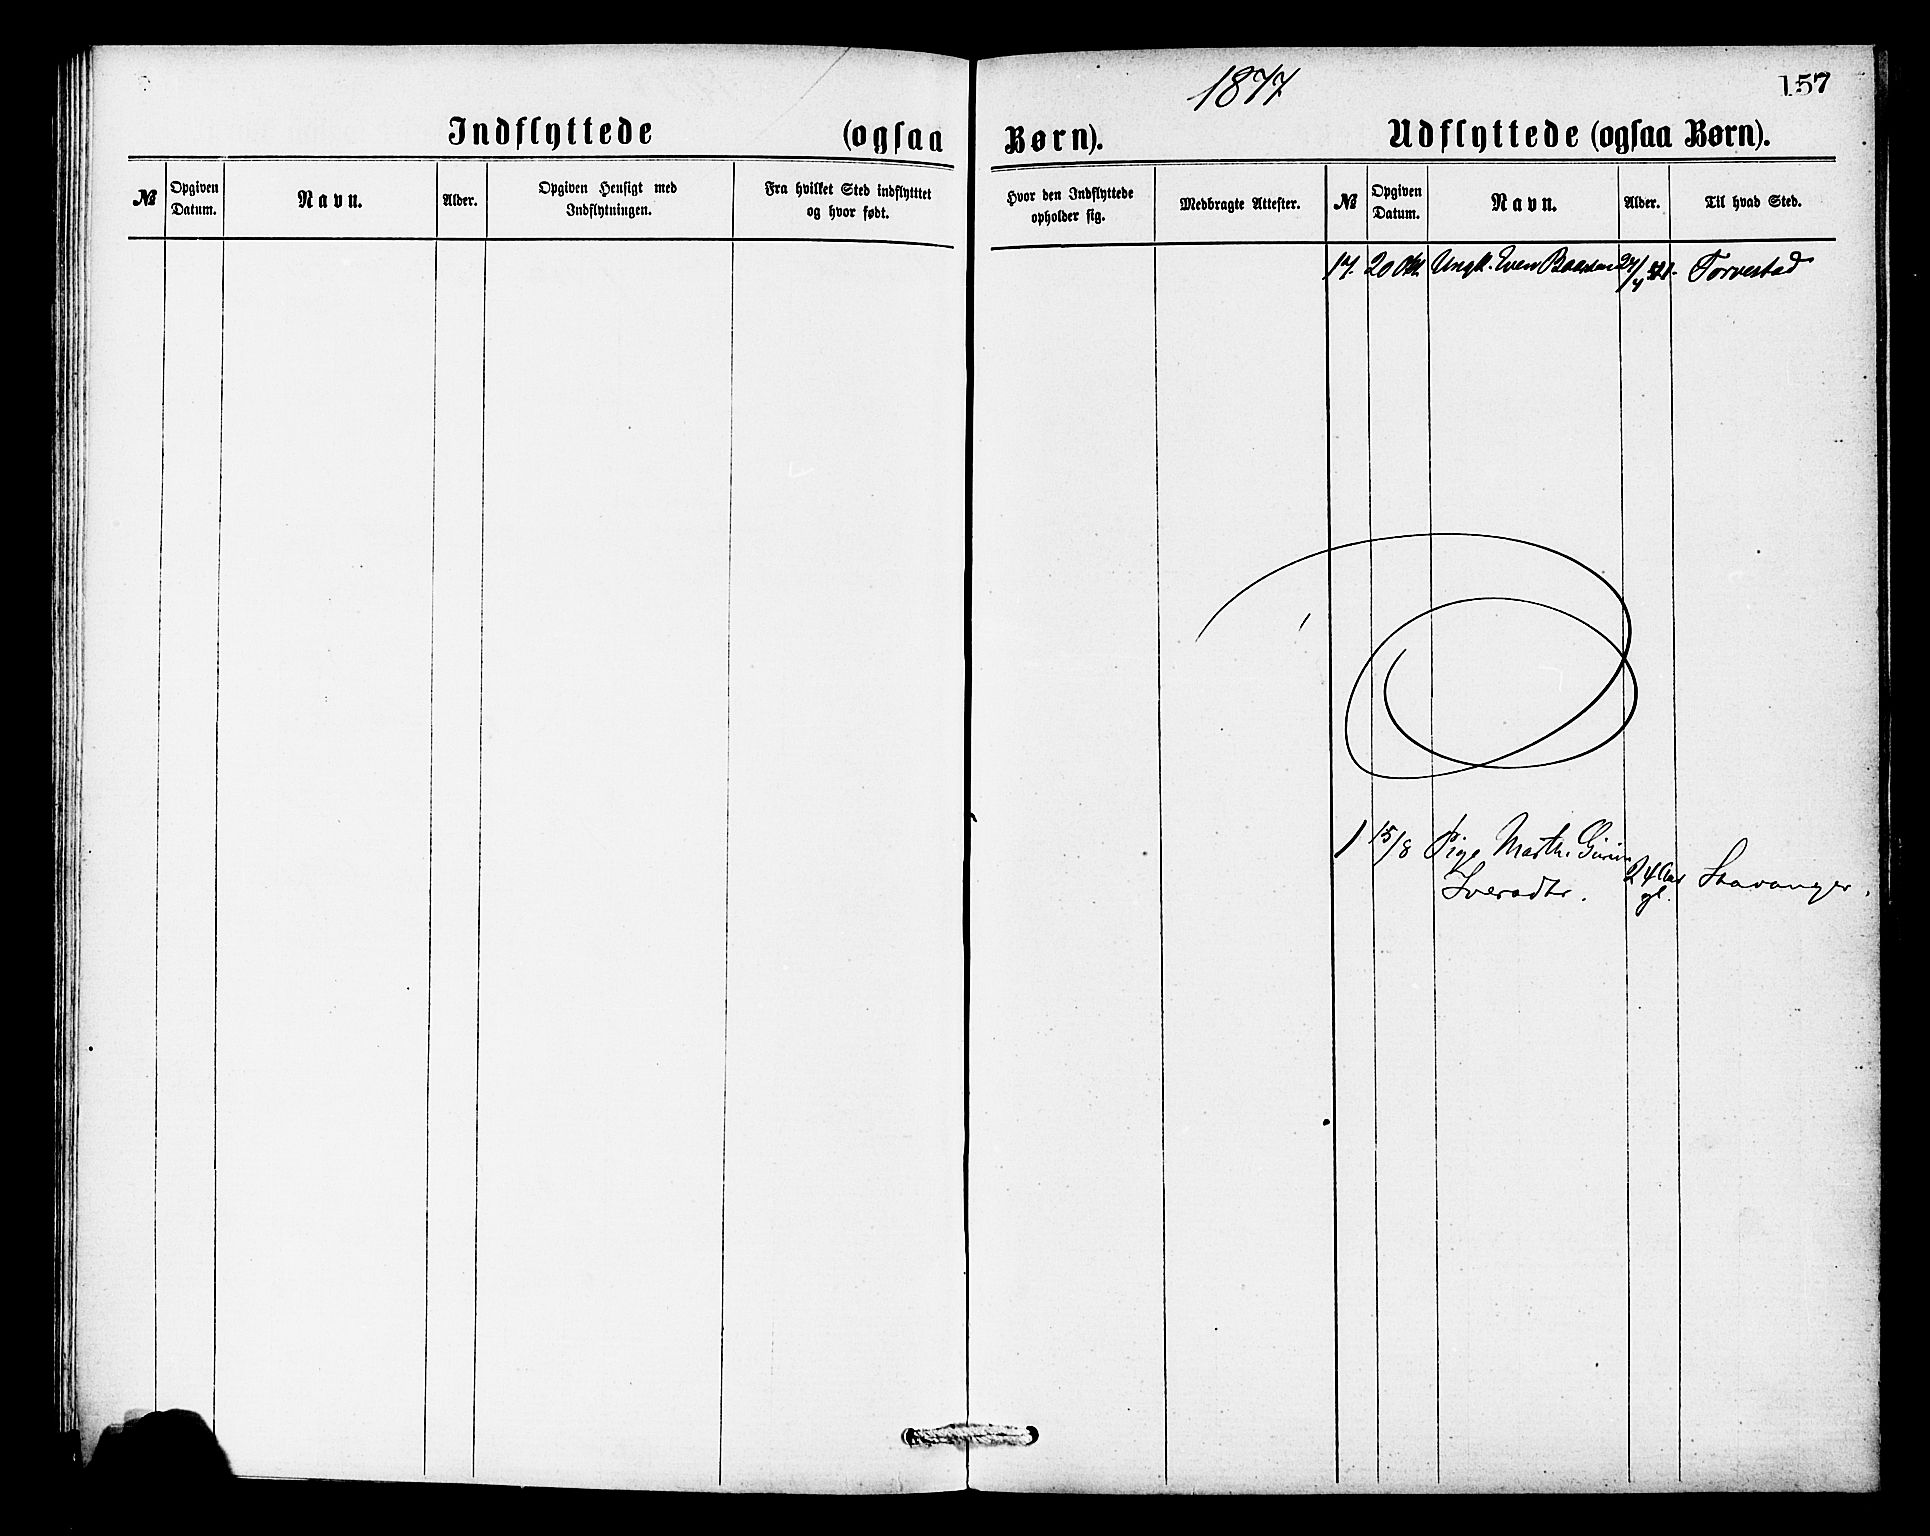 1877
157
Indflyttede (ogsaa Børn).
Udflyttede (ogsaa Børn).
№
Opgiven
Datum.
Navn.
Alder.
Opgiven Hensigt med
Indflytningen.
Fra hvilket Sted indflytttet
og hvor født.
Hvor den Indflyttede
opholder sig.
Medbragte Attester.
№
Opgiven
Datum.
Navn.
Alder.
Til hvad Sted.
17. 20 Okt. Ungk. Even Torvestad
1 15/8 Pige Marth.
Iversdtr. 24 Aar Stavanger.
gl.